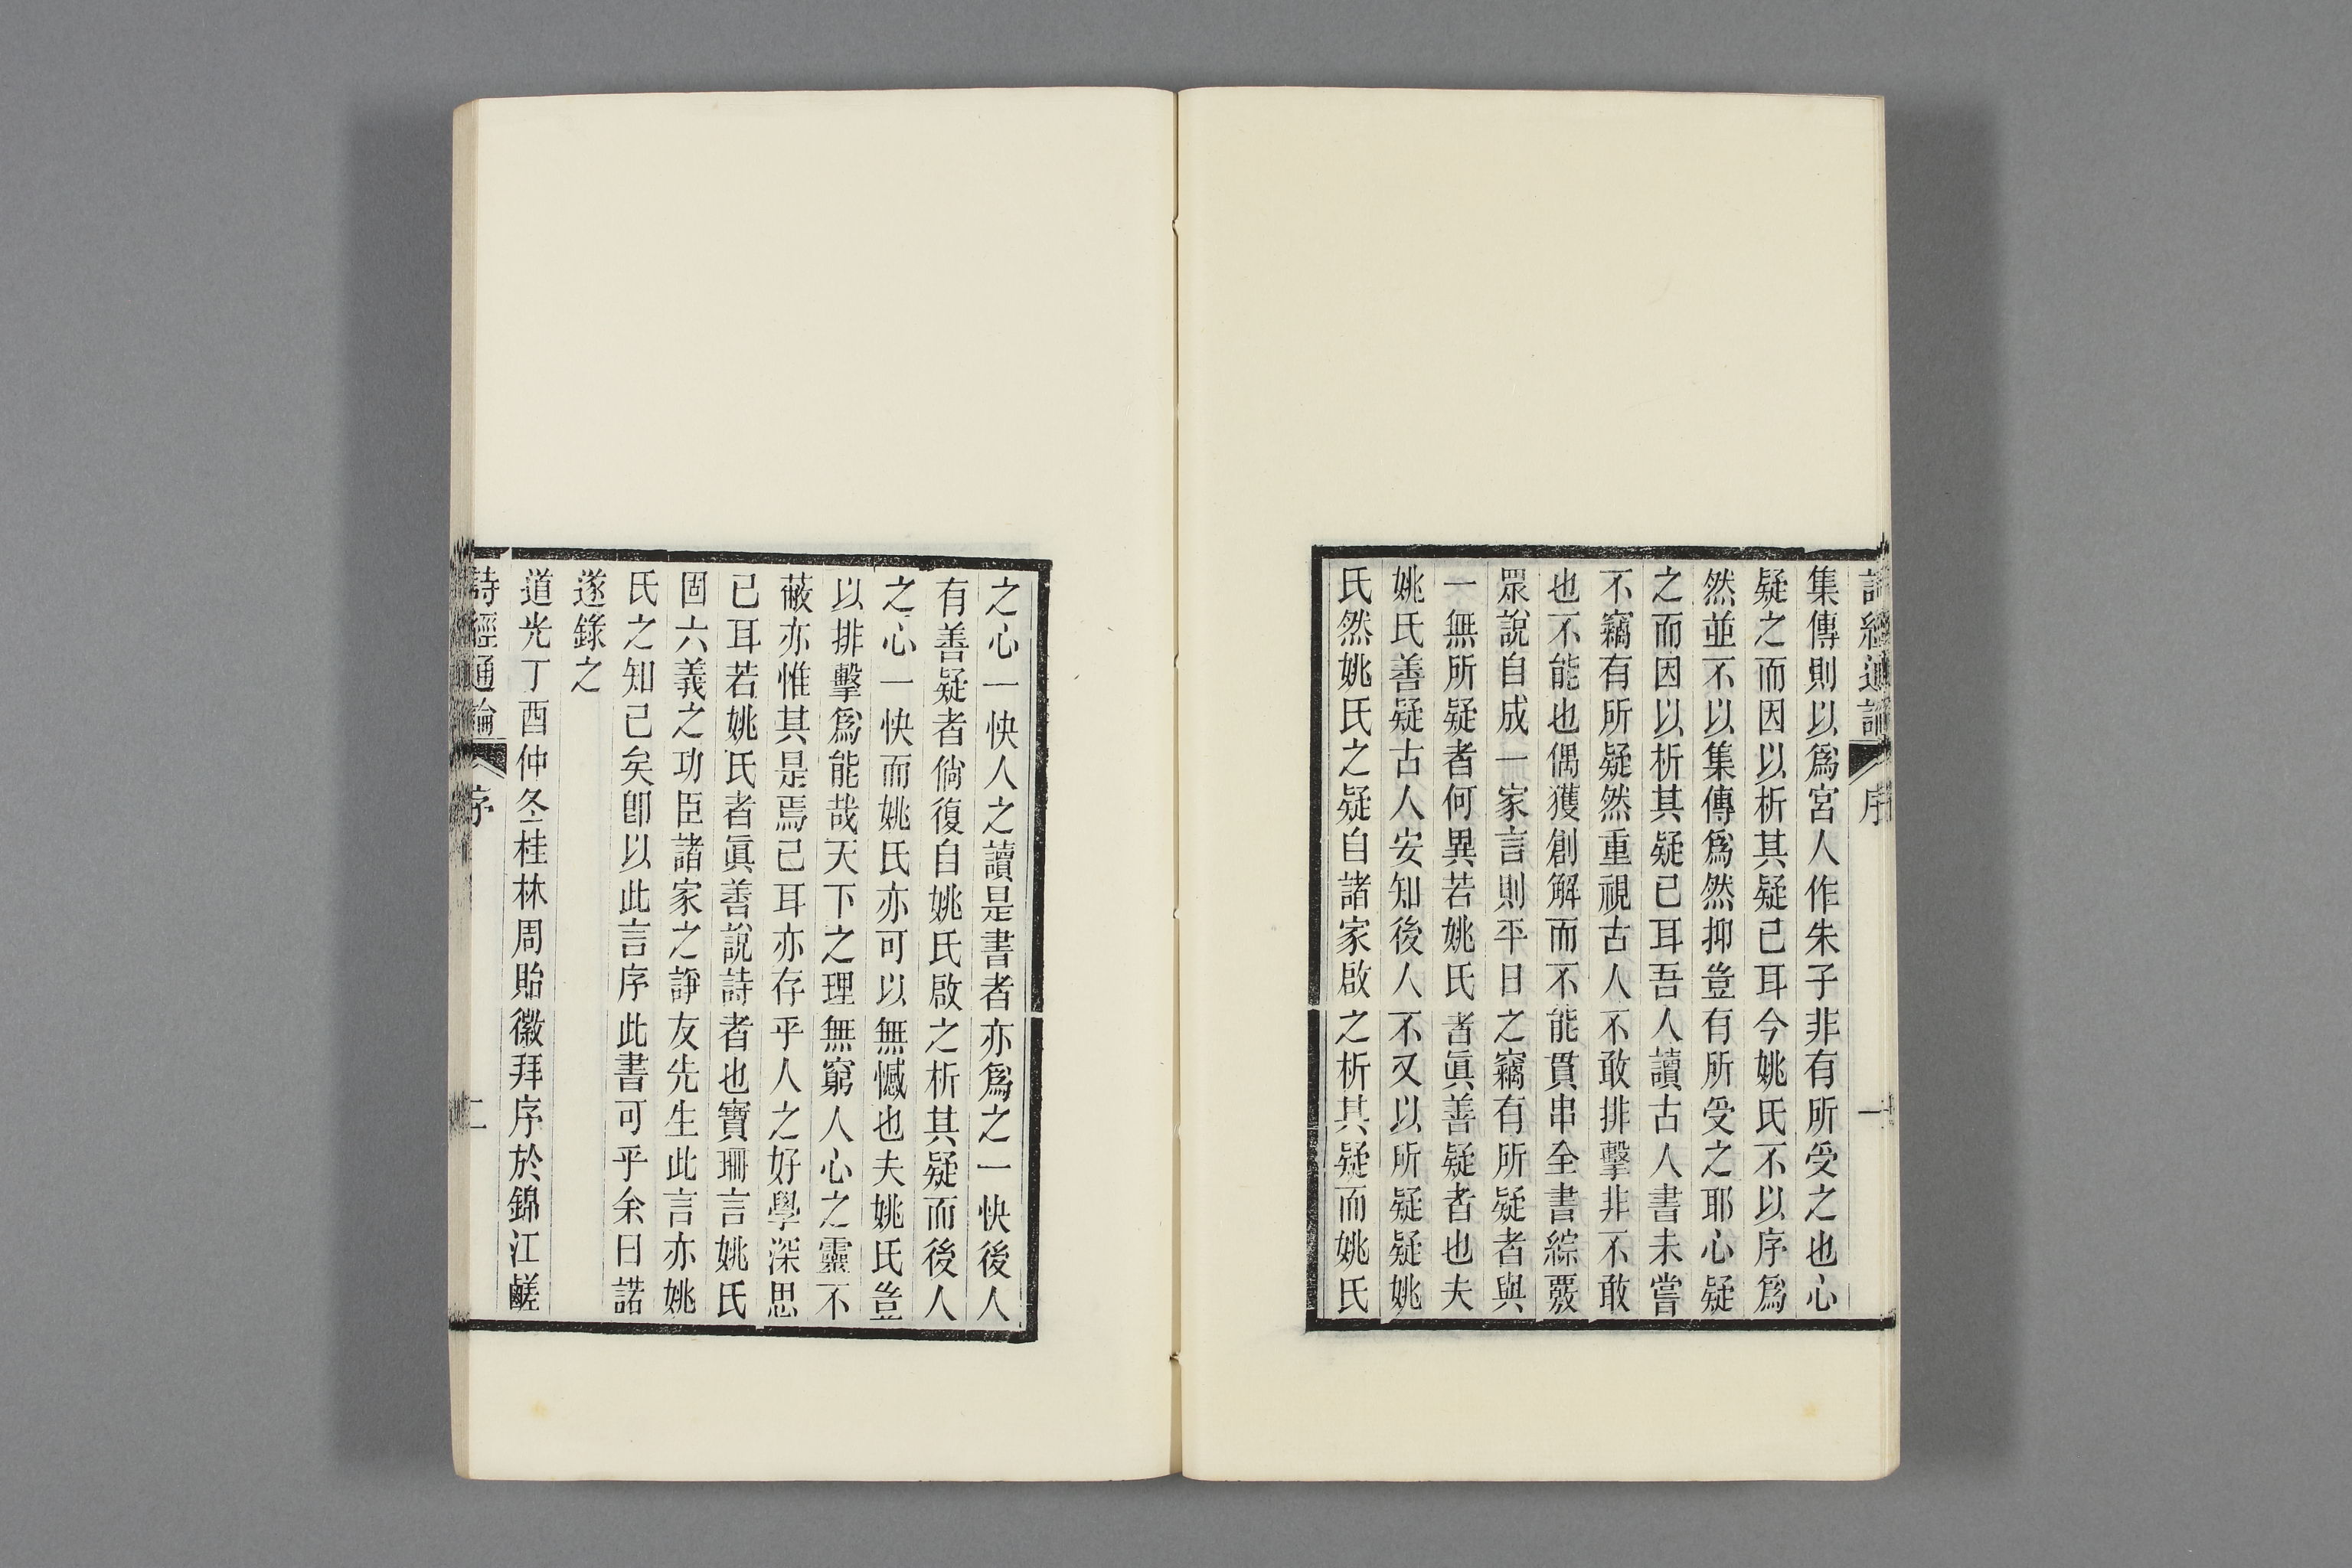 詩經通論 序 一
集傳則以爲宮人作朱子非有所受之也心
疑之而因以析其疑已耳今姚氏不以序爲
然並不以集傳爲然抑豈有所受之耶心疑
之而因以析其疑已耳吾人讀古人書未嘗
不竊有所疑然重視古人不敢排擊非不敢
也不能也偶獲創解而不能貫串全書綜覈
眾說自成一家言則平日之竊有所疑者與
一無所疑者何異若姚氏者眞善疑者也夫
姚氏善疑古人安知後人不又以所疑疑姚
氏然姚氏之疑自諸家啟之析其疑而姚氏
之心一快人之讀是書者亦爲之一快後人
有善疑者倘復自姚氏啟之析其疑而後人
之心一快而姚氏亦可以無憾也夫姚氏豈
以排擊爲能哉天下之理無窮人心之靈不
蔽亦惟其是焉已耳亦存乎人之好學深思
已耳若姚氏者眞善說詩者也寶珊言姚氏
固六義之功臣諸家之諍友先生此言亦姚
氏之知己矣卽以此言序此書可乎余曰諾
遂錄之
道光丁酉仲冬桂林周貽徽拜序於錦江鹺
詩經通論 序 二